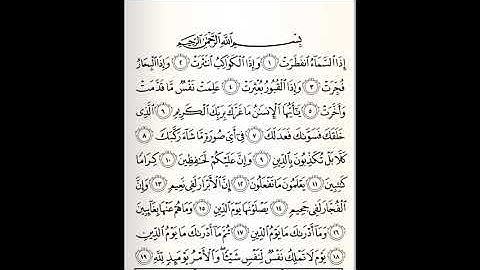 بِسْمِ اللَّهِ الرَّحْمَٰنِ الرَّحِيمِ
إِذَا السَّمَاءُ انفَطَرَتْ ۝١ وَإِذَا الْكَوَاكِبُ انتَثَرَتْ ۝٢ وَإِذَا الْبِحَارُ
فُجِّرَتْ ۝٣ وَإِذَا الْقُبُورُ بُعْثِرَتْ ۝٤ عَلِمَتْ نَفْسٌ مَّا قَدَّمَتْ
وَأَخَّرَتْ ۝٥ يَٰٓأَيُّهَا الْإِنسَٰنُ مَا غَرَّكَ بِرَبِّكَ الْكَرِيمِ ۝٦ الَّذِي
خَلَقَكَ فَسَوَّىٰكَ فَعَدَلَكَ ۝٧ فِي أَيِّ صُورَةٍ مَّا شَاءَ رَكَّبَكَ ۝٨
كَلَّا بَلْ تُكَذِّبُونَ بِالدِّينِ ۝٩ وَإِنَّ عَلَيْكُمْ لَحَٰفِظِينَ ۝١٠ كِرَامًا
كَٰتِبِينَ ۝١١ يَعْلَمُونَ مَا تَفْعَلُونَ ۝١٢ إِنَّ الْأَبْرَارَ لَفِي نَعِيمٍ ۝١٣ وَإِنَّ
الْفُجَّارَ لَفِي جَحِيمٍ ۝١٤ يَصْلَوْنَهَا يَوْمَ الدِّينِ ۝١٥ وَمَا هُمْ عَنْهَا بِغَائِبِينَ
۝١٦ وَمَا أَدْرَىٰكَ مَا يَوْمُ الدِّينِ ۝١٧ ثُمَّ مَا أَدْرَىٰكَ مَا يَوْمُ الدِّينِ
۝١٨ يَوْمَ لَا تَمْلِكُ نَفْسٌ لِّنَفْسٍ شَيْئًا ۖ وَالْأَمْرُ يَوْمَئِذٍ لِّلَّهِ ۝١٩